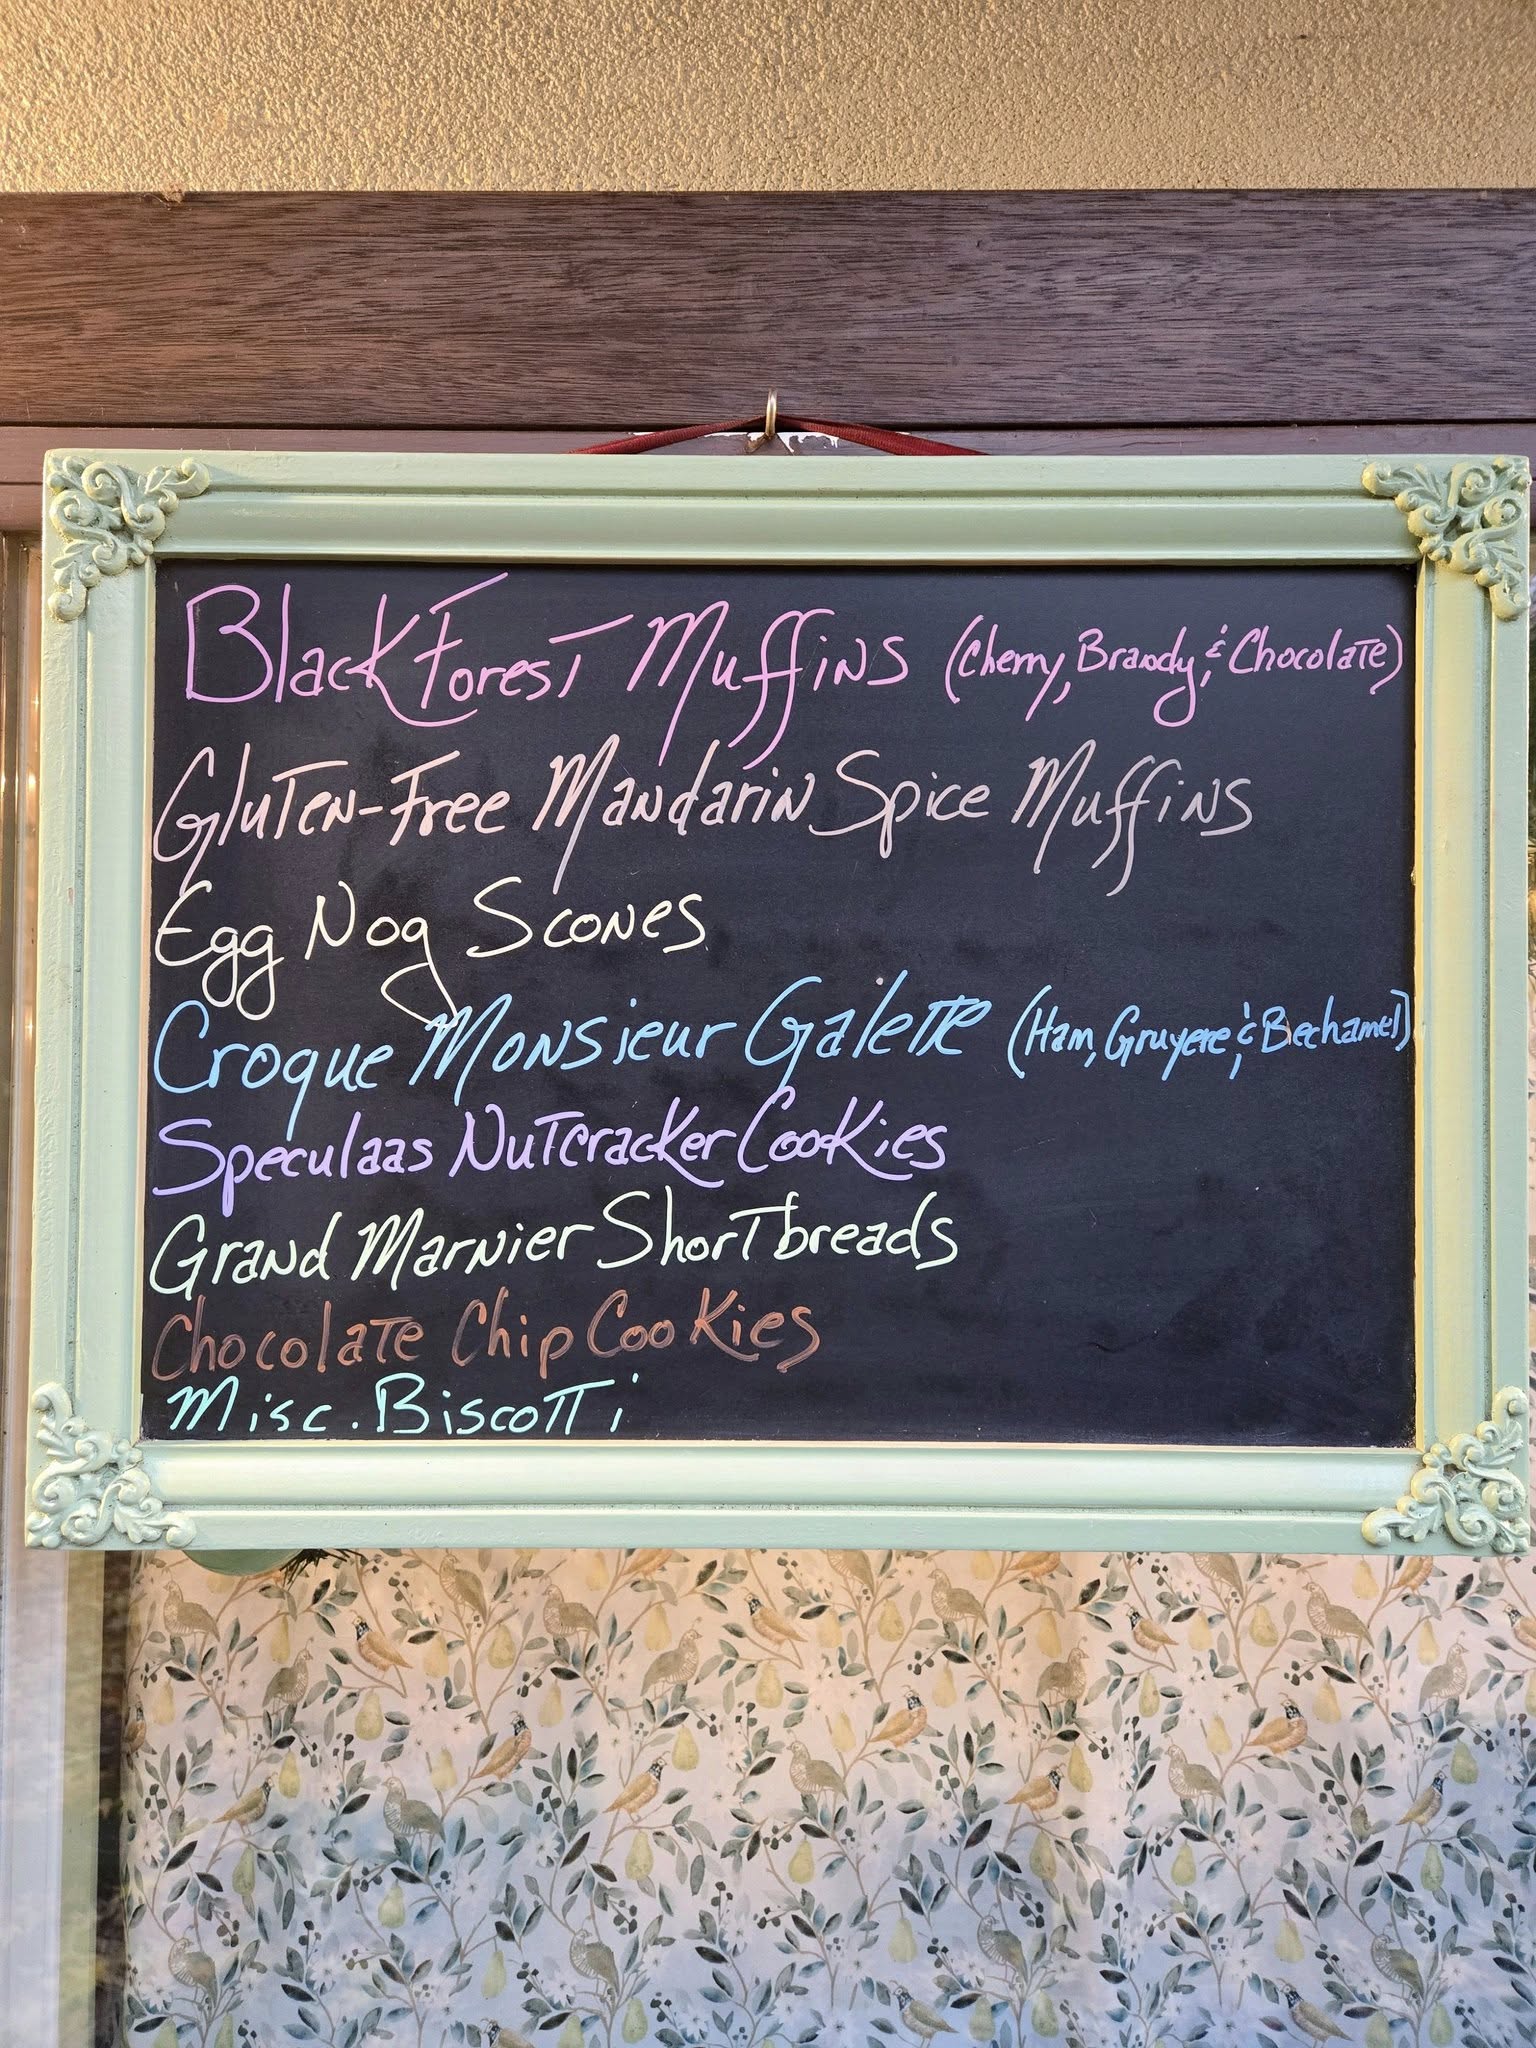 Black Forest Muffins (Cherry, Brandy, & Chocolate)
Gluten-Free Mandarin Spice Muffins
Egg Nog Scones
Croque Monsieur Galette (Ham, Gruyere, & Bechamel)
Speculaas Nutcracker Cookies
Grand Marnier Shortbreads
Chocolate Chip Cookies
Misc. Biscotti